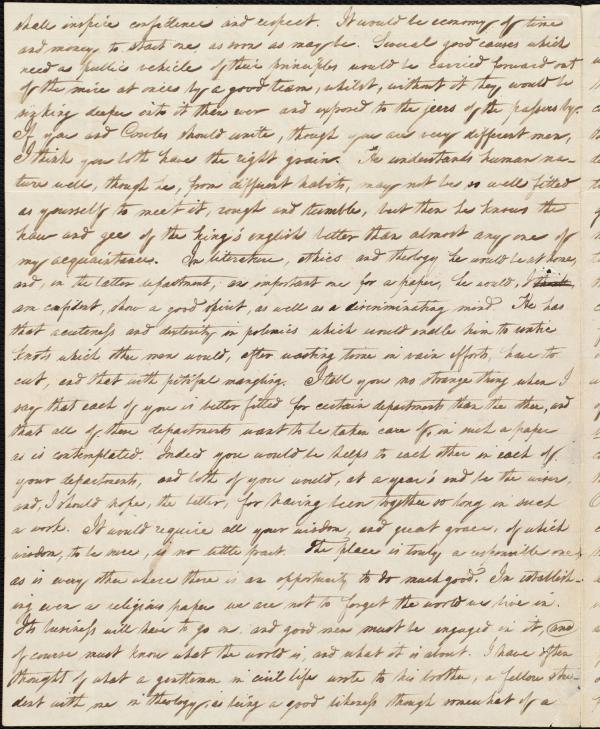 shall inspire confidence and respect. It would be economy of time
and money to start one as soon as may be. Several good causes which
need a public vehicle of their principles would be carried forward out
of the mire at once by a good team, whilst, without it they would be
sinking deeper into it than ever and exposed to the jeers of the passers by.
If you and Cowles should unite, though you are very different men,
I think you both have the right grain. He understands human na-
ture well, though he, from different habits, may not be so well fitted
as yourself to meet it, rough and tumble, but then he knows the
haw and gee of the king's english better than almost any one of
my acquaintance. In literature, ethics and theology he would be at home,
and, in the latter department, an important one for a paper, he would, I think
am confident, show a good spirit, as well as a discriminating mind. He has
that acuteness and dexterity in polemics which would enable him to untie
knots which other men would, after wasting time in vain efforts, have to
cut, and that with pitiful mangling. I tell you no strange thing when I
say that each of you is better fitted for certain departments than the other, and
that all of these departments want to be taken care of, in such a paper
as is contemplated. Indeed you would be helps to each other in each of
your departments, and both of you would, at a year's end be the wiser,
and, I should hope, the better, for having been together so long in such
a work. It would require all your wisdom, and great grace, of which
wisdom, to be sure, is no little part. The place is truly a responsible one,
as is every other where there is an opportunity to do much good. In establish-
ing even a religious paper we are not to forget the world we live in.
Its business will have to go on, and good men must be engaged in it, and
of course must know what the world is, and what it is about. I have often
thought of what a gentleman in civil life wrote to his brother, a fellow stu-
dent with me in theology, as being a good likeness though somewhat of a